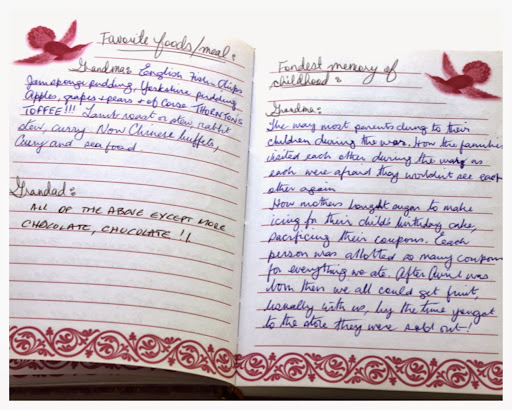 Favorite foods/meal:
Grandma: English Fish + Chips
Jam sponge pudding, Yorkshire pudding
Apples, grapes + pears + of corse THORNTONS
TOFFEE!!! Lamb roast or stew, rabbit
stew, curry. Now Chinese buffets,
Curry and seafood
Grandad:
ALL OF THE ABOVE EXCEPT MORE
CHOCOLATE, CHOCOLATE !!
Fondest memory of
childhood:
Grandma:
The way most parents clung to their
children during the war. How the families
visited each other during the war as
each were afraid they wouldn't see each
other again
How mothers bought sugar to make
icing for their child's birthday cake,
sacrificing their coupons. Each
person was allotted so many coupons
for everything we ate. After Avril was
born then we all could get fruit,
usually with us, by the time you got
to the store they were sold out!